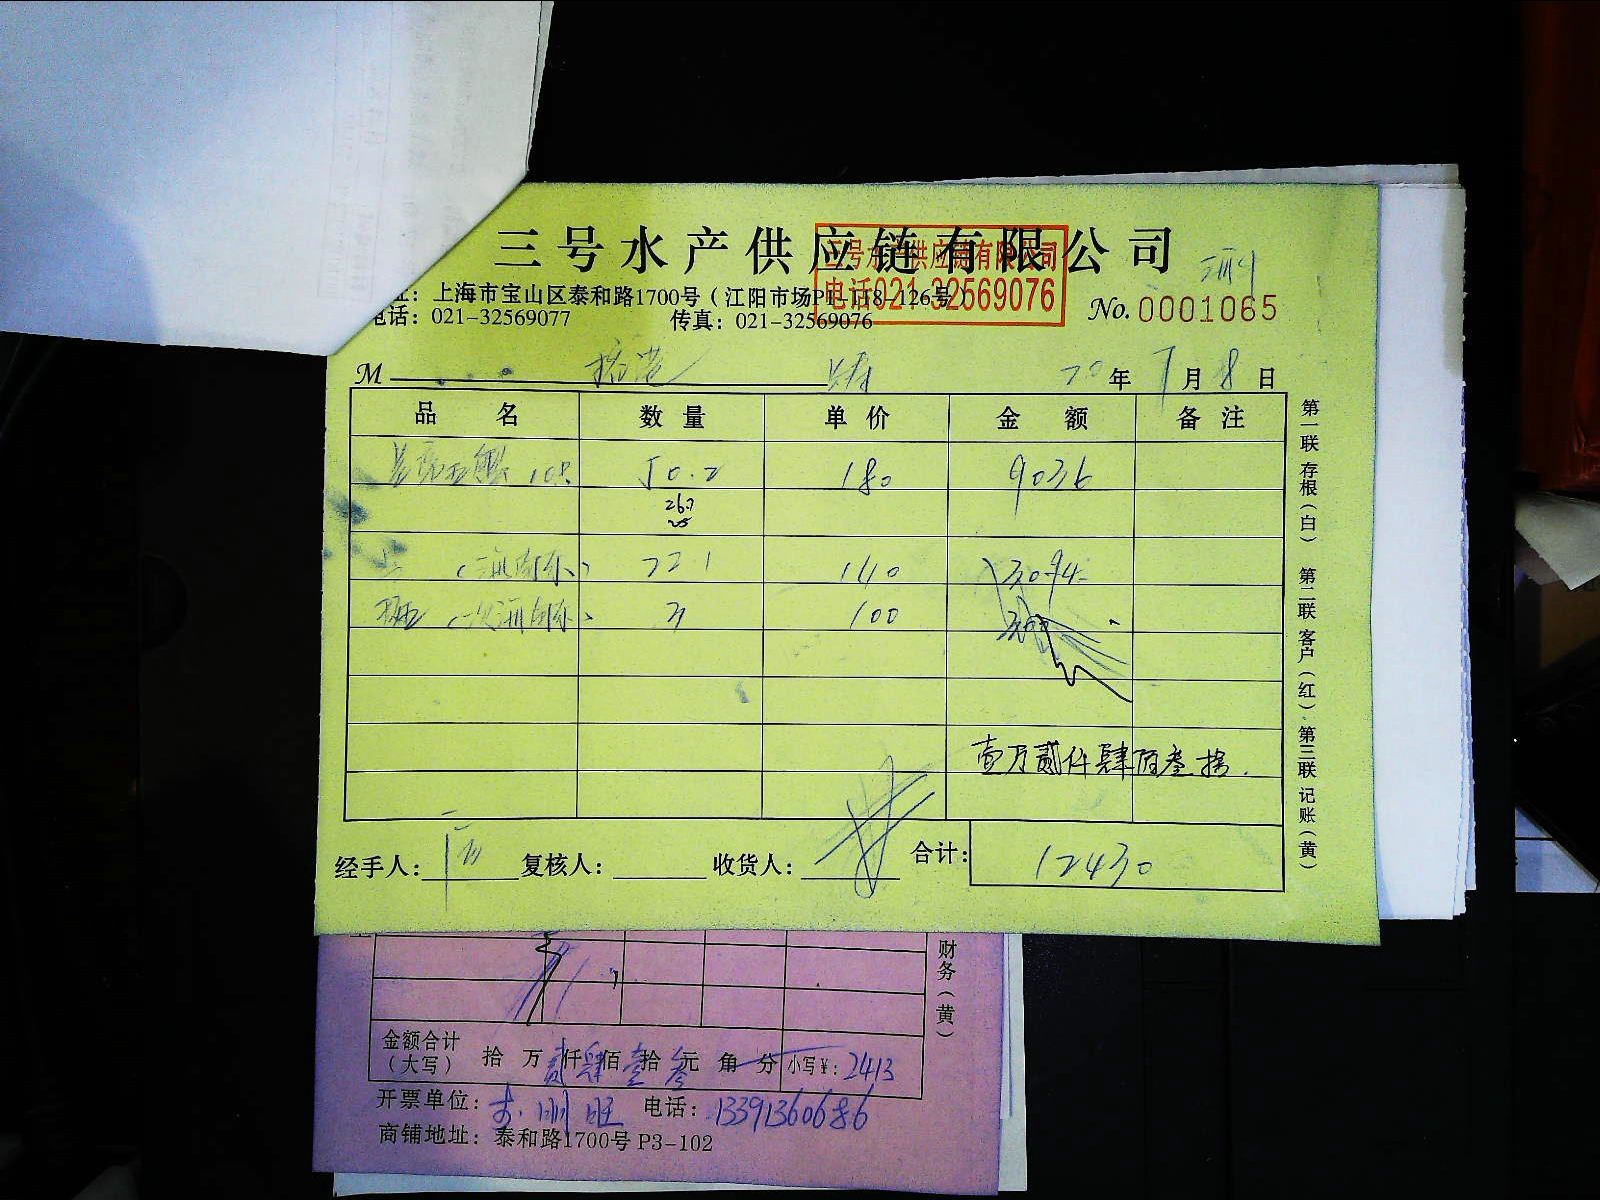 三号水产供应链有限公司
三号水产供应链有限公司
电话021-32569076
址：上海市宝山区泰和路1700号（江阳市场P1-118-126号）
电话：021-32569077 传真：021-32569076
No. 0001065
M
20年 7月 8日
品 名 数 量 单 价 金 额 备 注
10只 50.2 180 9036
26.7
25
22.1 140 3094
3 100 300
壹万贰仟肆佰叁拾
经手人： 复核人： 收货人： 合计： 12430
第一联 存根（白） 第二联 客户（红） 第三联 记账（黄）
财务（黄）
金额合计
（大写） 拾 万 贰仟肆佰壹拾叁元 角 分 小写￥：2413
开票单位： 电话：13391360686
商铺地址：泰和路1700号 P3-102